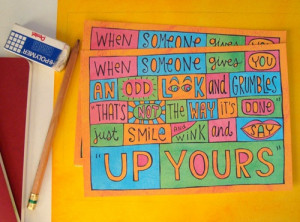 HI-POLYMER
Pentel
WHEN SOMEONE gives
WHEN SOMEONE gives YOU
AN ODD LOOK and GRUMBLES
"THAT'S NOT THE WAY IT'S DONE"
just SMILE and WINK and SAY
"UP YOURS"